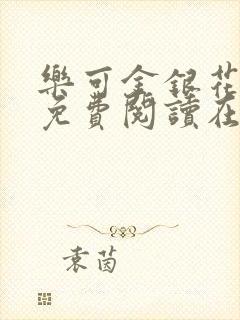 樂可金銀花
免費閱讀在
袁茵